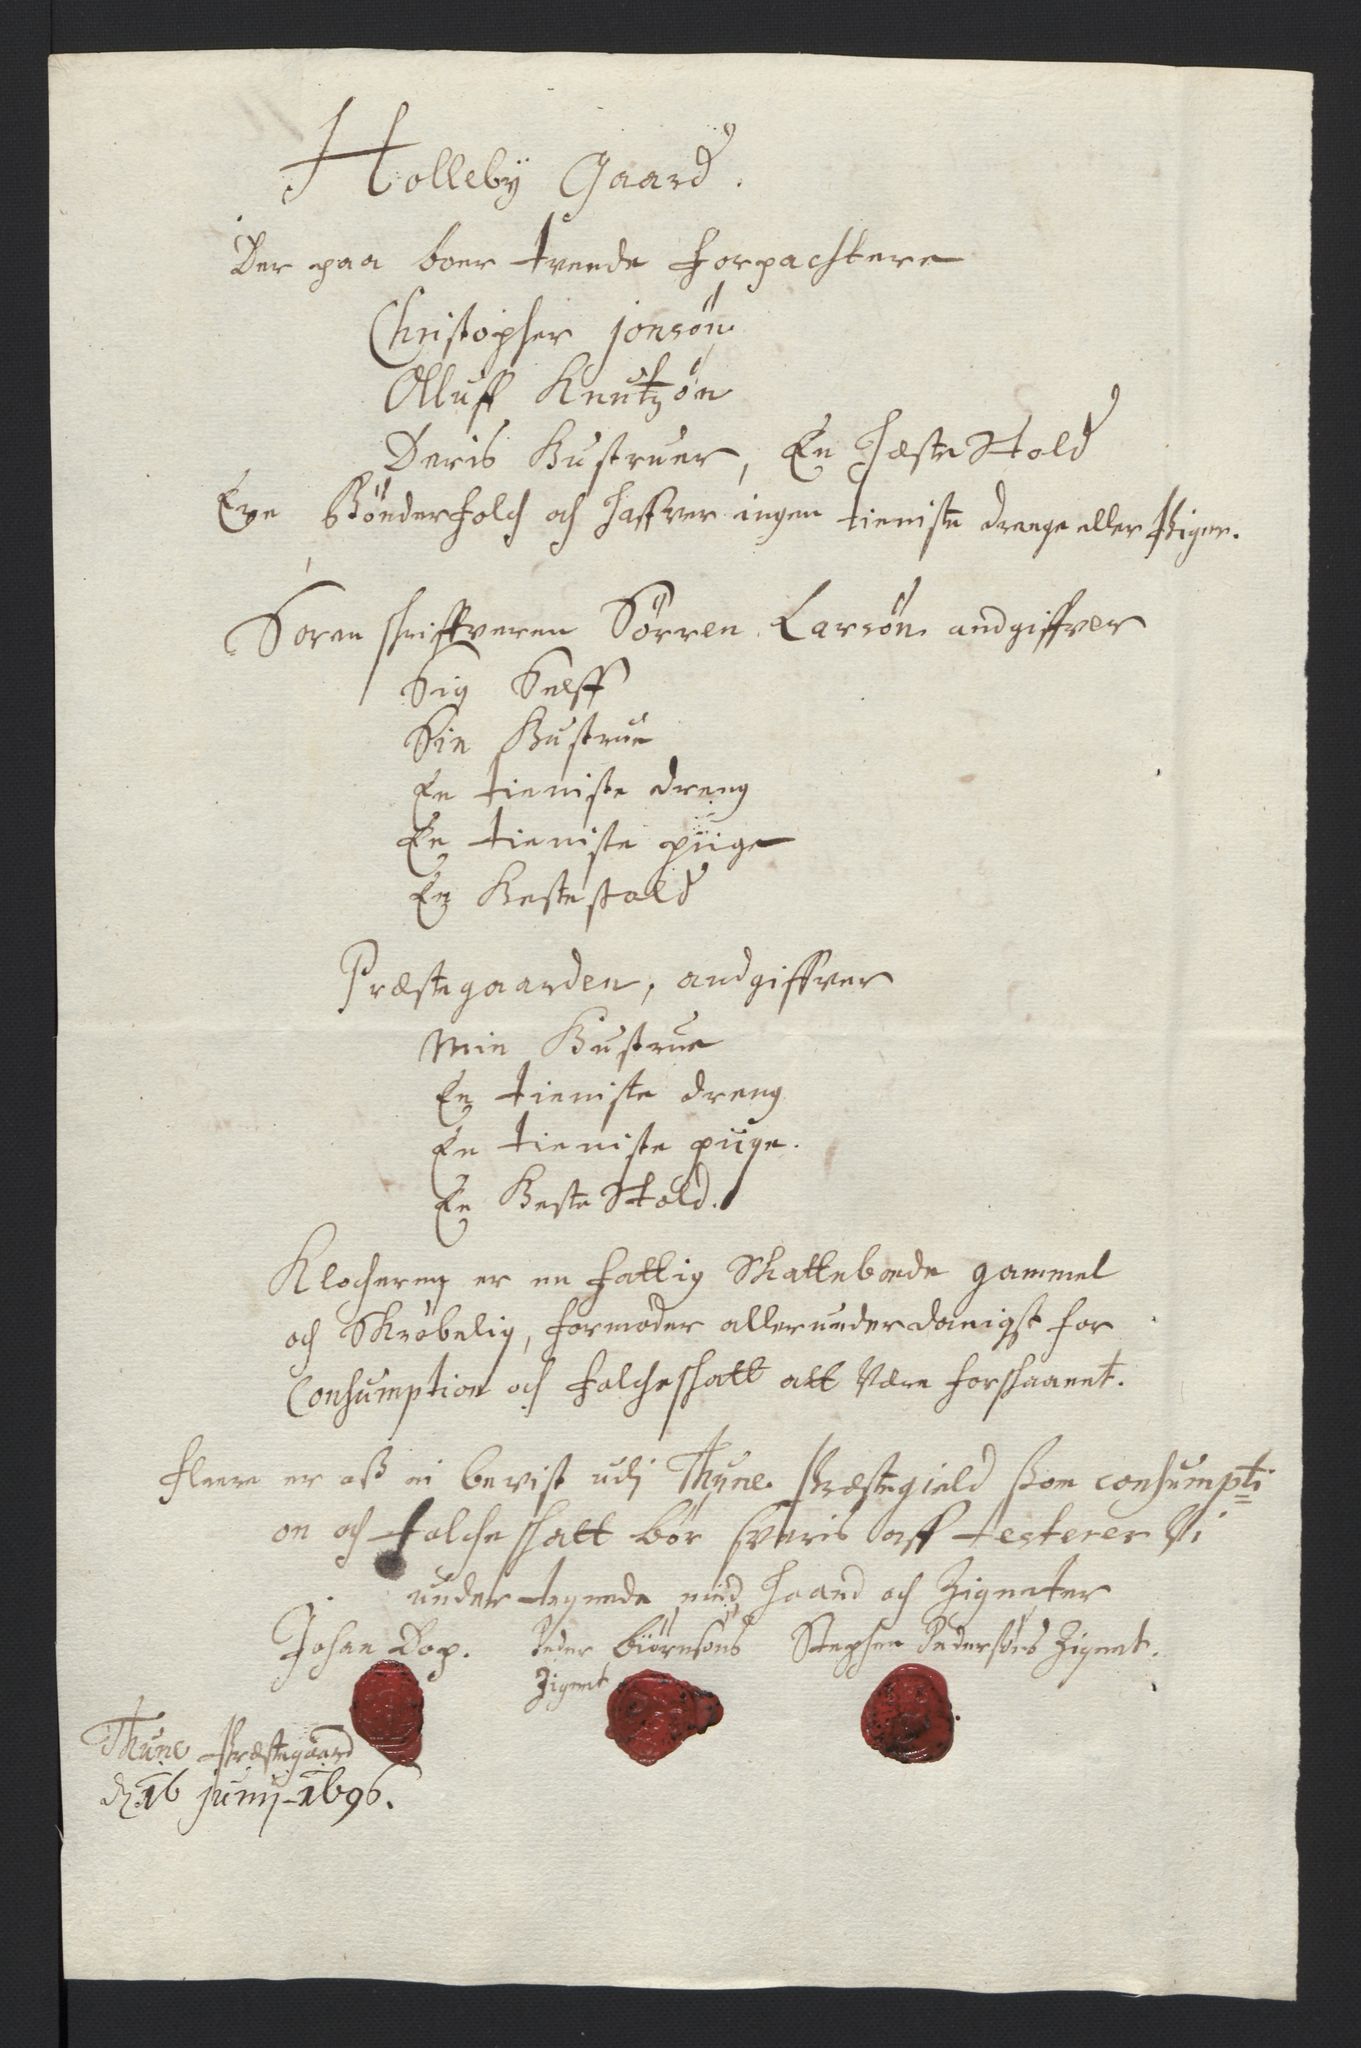 Holleby Gaard.
Der paa boer tvende forpachtere
Christopher jonsøn
Olluff Knutzøn
Deris Hustruer, En Hæste Hold
Ere Bønderfolch och haffver ingen tieniste drenge eller Piger.
Soren schriffveren Sörren Larsøn andgiffver
Sig Selff
Sin Hustrue
En tieniste dreng
En tieniste piige
En Hestestald
Præstegaarden, andgiffver
Min Hustrue
En tieniste dreng
En tieniste piige.
En Heste Hold.
Klocheren er en fattig Skattebonde gammel
och Skröbelig, formoder allerunderdanigst for
Consumption och folcheschatt att være forschaanet.
Fleere er oß ei bevist udj Thune Præstegield som consumpti=
on och folcheschatt bör svaris aff testerer Vi
undertegnede med haand och Zigneter
Johan Dop. Peder Biörnsöns Stephen Pedersöns Zignet.
Zignet
Thune Præstegaard
d. 16 junij 1696.